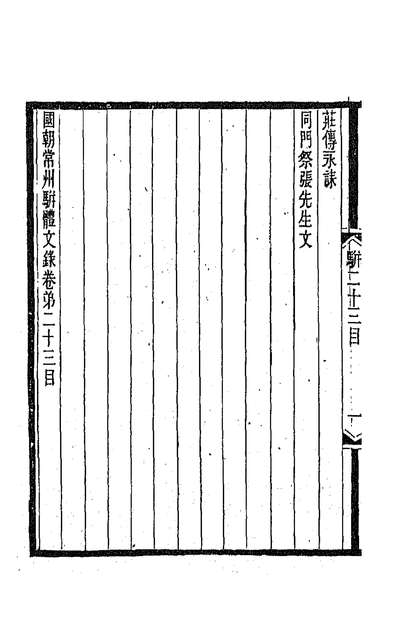 駢二十三目
一
莊傳永誄
同門祭張先生文
國朝常州駢體文錄卷弟二十三目